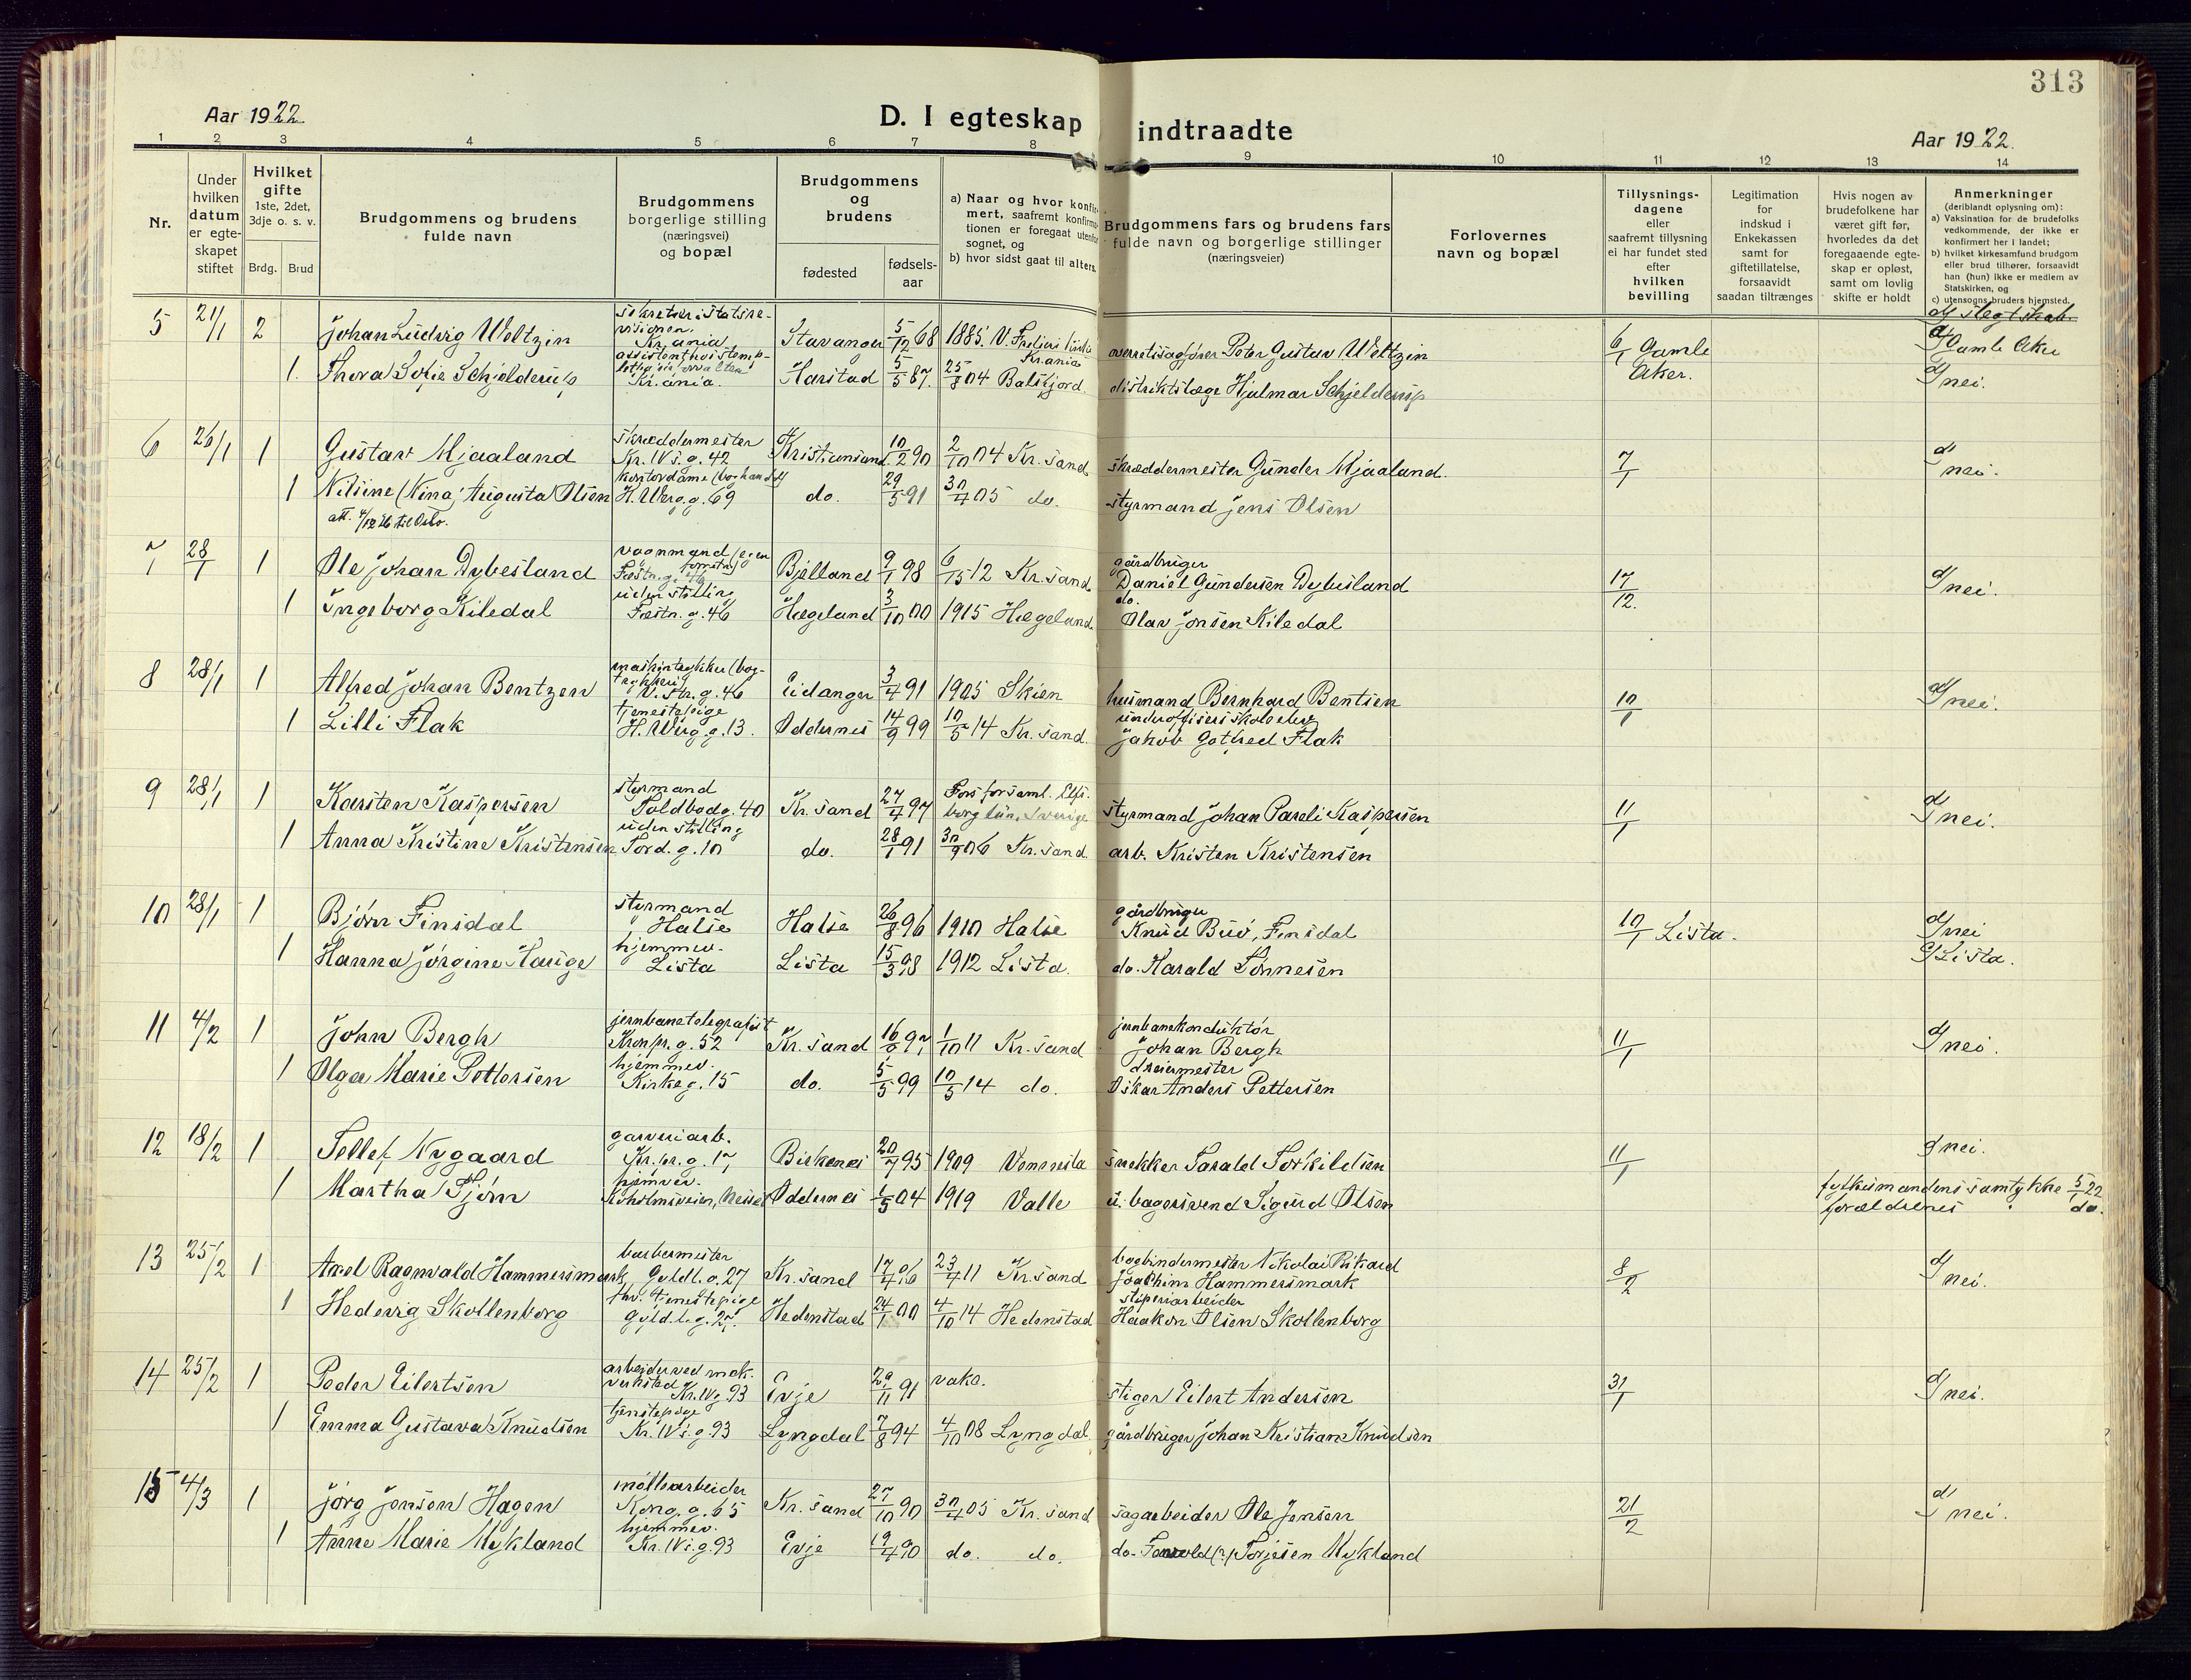 313
Aar 1922
D. I egteskap indtraadte
Aar 1922.
1 2 3 4 5 6 7 8 9 10 11 12 13 14
Nr.
Under hvilken datum er egteskapet stiftet
Hvilket gifte 1ste, 2det, 3dje o. s. v.
Brdg. Brud
Brudgommens og brudens fulde navn
Brudgommens borgerlige stilling (næringsvei) og bopæl
Brudgommens og brudens
fødested
fødselsaar
a) Naar og hvor konfirmert, saafremt konfirmationen er foregaat utenfor sognet, og
b) hvor sidst gaat til alters.
Brudgommens fars og brudens fars fulde navn og borgerlige stillinger (næringsveier)
Forlovernes navn og bopæl
Tillysningsdagene eller saafremt tillysning ei har fundet sted efter hvilken bevilling
Legitimation for indskud i Enkekassen samt for giftetillatelse, forsaavidt saadan tiltrænges
Hvis nogen av brudefolkene har været gift før, hvorledes da det foregaaende egteskap er opløst, samt om lovlig skifte er holdt
Anmerkninger (deriblandt oplysning om):
a) Vaksination for de brudefolks vedkommende, der ikke er konfirmert her i landet;
b) hvilket kirkesamfund brudgom eller brud tilhører, forsaavidt han (hun) ikke er medlem av Statskirken, og
c) utensogns bruders hjemsted.
d) slegtskab.
5 21/1 2 Johan Ludvig Weltzin sekretær i statsrevisionen. Kr.ania Stavanger 5/12 68 1885. V. Frelsers Kirke Kr.ania overretssagfører Peter Gustav Weltzin 6/1 Gamle Aker. c) Gamle Aker
1. Thora Sofie Schjelderup Kr.ania. Harstad 5/5 87. 25/8 04 Balsfjord. distriktslæge Hjalmar Schjelderup d) nei.
6 26/1 1 Gustav Mjaaland skræddermester Kr. IVs. g. 42 Kristiansand 10/12 90 2/10 04 Kr.sand skræddermester Gunder Mjaaland. 7/1 d) nei.
1 Nilsine (Nina) Augusta Olsen kontordame (boghandel) H. Werg. g. 69 do. 29/5 91 30/4 05 do. styrmand Jens Olsen
att. 4/12 26 til Oslo.
7 28/1 1 Ole Johan Dybesland vognmand (egen forretn.) Fæstn. g. 46 Bjelland 9/1 98 6/15 12 Kr.sand. gårdbruger Daniel Gundersen Dybesland 17/12. d) nei.
1 Ingeborg Kiledal uden stilling Fæstn. g. 46 Hægeland 3/10 00 1915 Hægeland. do. Olav Jonsen Kiledal
8 28/1 1 Alfred Johan Bentzen maskintrykker (bogtrykkeri) V. Str. g. 46 Eidanger 3/4 91 1905 Skien husmand Bernhard Bentsen 10/1 d) nei.
1 Lilli Flak tjenestepige H. Werg. g. 13. Oddernes 14/9 99 10/5 14 Kr.sand. underoffisersskoleelev Jakob Gotfred Flak
9 28/1 1 Karsten Kaspersen styrmand Toldbodg. 40 Kr.sand 27/4 97 Fors forsaml. Elfsborg län, Sverige styrmand Johan Pareli Kaspersen 11/1 d) nei.
1 Anna Kristine Kristensen uden stilling Tord. g. 10 do. 28/1 91 30/9 06 Kr.sand. arb. Kristen Kristensen
10 28/1 1 Bjørn Finsdal styrmand Halse Halse 26/8 96 1910 Halse gårdbruger Knud Buø, Finsdal 10/1 Lista. d) nei
1 Hanna Jørgine Hauge hjemmev. Lista Lista 15/3 98 1912 Lista. do. Harald Tønnesen c) Lista.
11 4/2 1 John Bergh jernbanetelegrafist Kronpr. g. 52 Kr.sand 16/6 97, 1/10 11 Kr.sand jernbanekonduktør Johan Bergh 11/1 d) nei.
1 Olga Marie Pettersen hjemmev. Kirkeg. 15 do. 5/5 99 10/5 14 do. dreiermester Oskar Anders Pettersen
12 18/2 1 Tellef Nygaard garveriarb. Kr. pr. g. 17, Birkenes 20/7 95 1909 Vennesla snekker Tarald Torkildsen 11/1 d) nei.
1 Martha Tjøm hjemmev. Oddernes 1/5 04 1919 Valle u. bagersvend Sigurd Olsen fylkesmandens samtykke 5/1 22
forældrenes do.
13 25/2 1 Axel Ragnvald Hammersmark barbermester Gyldl. g. 27 Kr.sand 17/4 96 23/4 11 Kr.sand bogbindermester Nikolai Rikard Joachim Hammersmark 8/2 d) nei.
1 Hedevig Skollenborg fhv. tjenestepige Gyld. l. g. 27. Hedenstad 24/1 00 4/10 14 Hedenstad støperiarbeider Haakon Olsen Skollenborg
14 25/2 1 Peder Eilertsen arbeider ved mek. verksted Kr. IVg. 93 Evje 29/11 91 vaks. stiger Eilert Andersen 31/1 d) nei.
1 Emma Gustava Knudsen tjenstepige Kr. IVs. g. 93 Lyngdal 7/8 94 4/10 08 Lyngdal. gårdbruger Johan Kristian Knudsen
15 4/3 1 Jørg Jensen Hagen mølleearbeider Kong. g. 65 Kr.sand 27/10 90 30/4 05 Kr.sand sagarbeider Ole Jensen 21/2 d) nei.
1 Anne Marie Mykland hjemmev. Kr. IVs. g. 93 Evje 19/4 90 do. do. do. (?) Torjesen Mykland